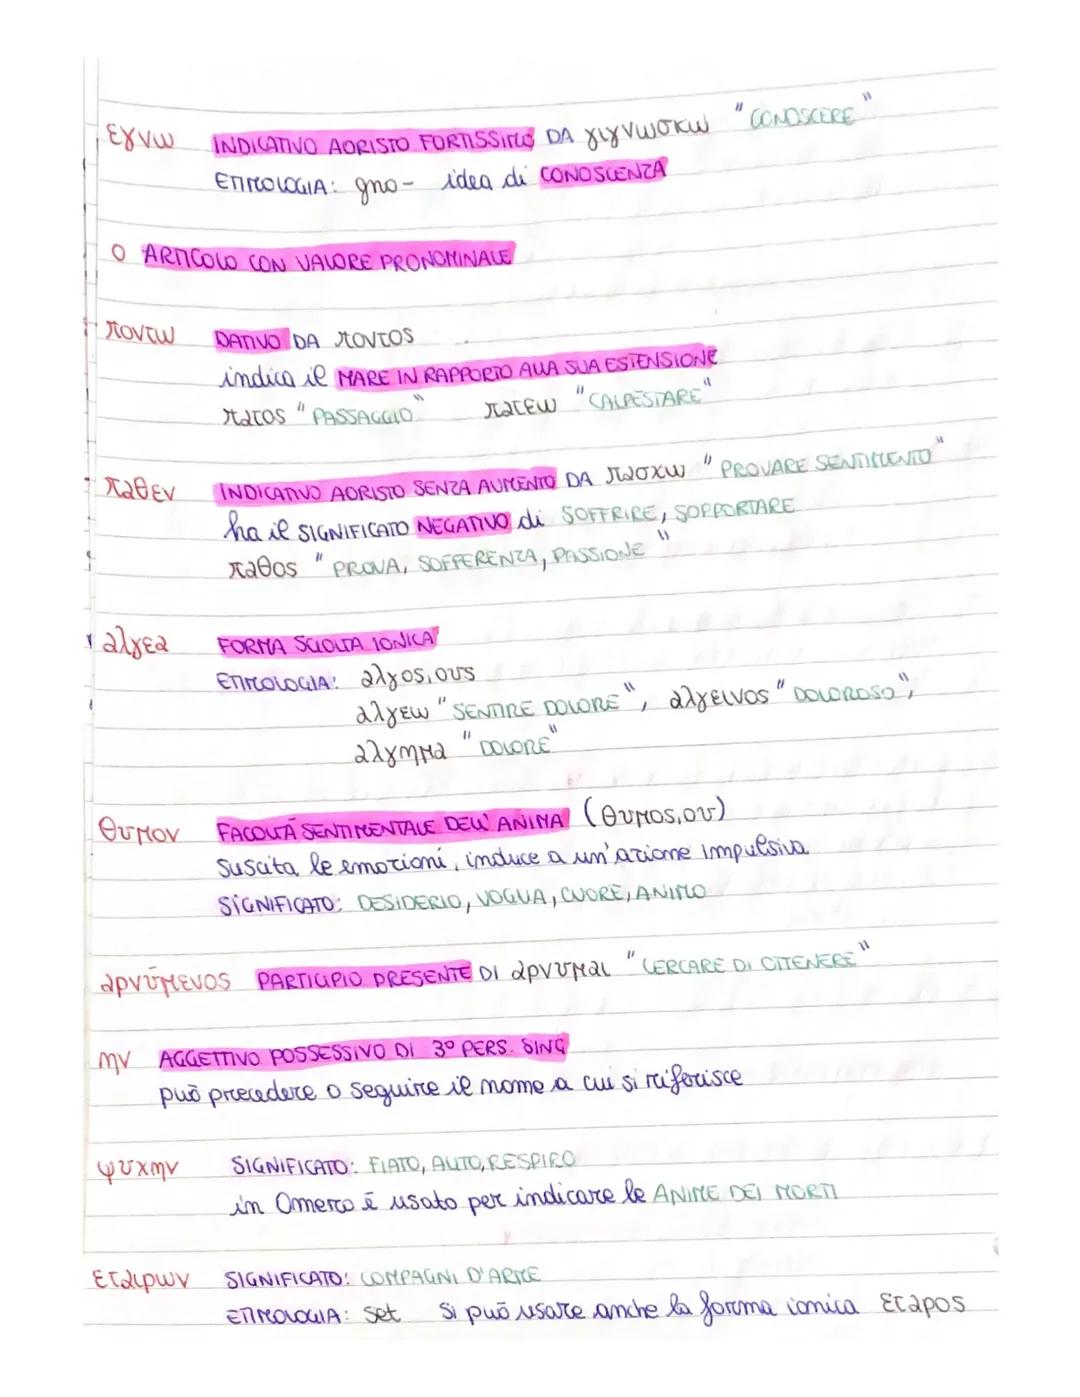 εγνω INDICATIVO AORISTO FORTISSIMO DA γιγνωσκω "CONOSCERE"
ETIMOLOGIA: gno- idea di CONOSCENZA
ο ARTICOLO CON VALORE PRONOMINALE
ποντω DATIVO DA ποντος
indica il MARE IN RAPPORTO ALLA SUA ESTENSIONE
πατος "PASSAGGIO" πατεω "CALPESTARE"
παθεν INDICATIVO AORISTO SENZA AUMENTO DA πασχω "PROVARE SENTIMENTO"
ha il SIGNIFICATO NEGATIVO di SOFFRIRE, SOPPORTARE
παθος "PROVA, SOFFERENZA, PASSIONE"
αλγεα FORMA SCIOLTA IONICA
ETIMOLOGIA: αλγος, ους
αλγεω "SENTIRE DOLORE", αλγεινος "DOLOROSO",
αλγημα "DOLORE"
θυμον FACOLTÀ SENTIMENTALE DELL'ANIMA (θυμος, ου)
suscita le emozioni, induce a un'azione impulsiva
SIGNIFICATO: DESIDERIO, VOGLIA, CUORE, ANIMO
αρνῡμενος PARTICIPIO PRESENTE DI αρνυμαι "CERCARE DI OTTENERE"
ην AGGETTIVO POSSESSIVO DI 3º PERS. SING
può precedere o seguire il nome a cui si riferisce
ψυχην SIGNIFICATO: FIATO, ALITO, RESPIRO
in Omero è usato per indicare le ANIME DEI MORTI
εταιρων SIGNIFICATO: COMPAGNI D'ARME
ETIMOLOGIA: set si può usare anche la forma ionica εταρος